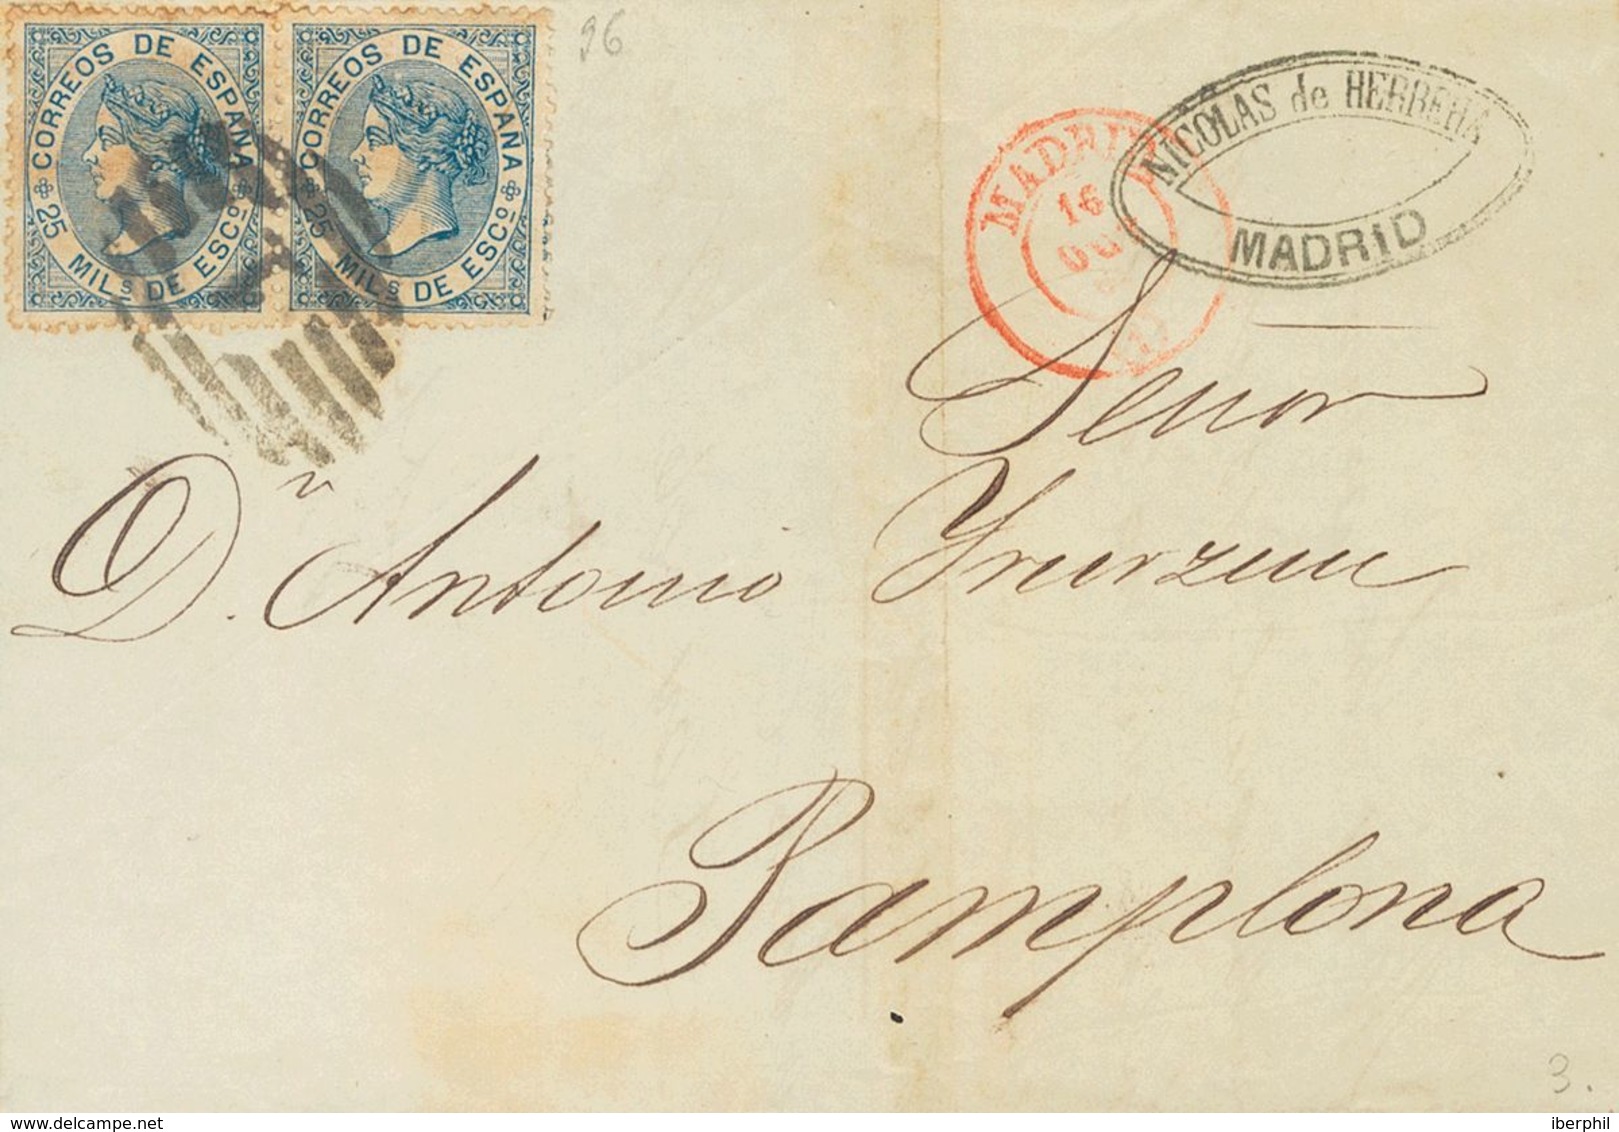 CORREOS DE ESPAÑA
25 MILs DE ESCº
CORREOS DE ESPAÑA
25 MILs DE ESCº
96
MADRID
16
NICOLAS de HERRERA
MADRID
Senor
Dn. Antonio Yrurzun
Pamplona
3.
delcampe.net
iberphil